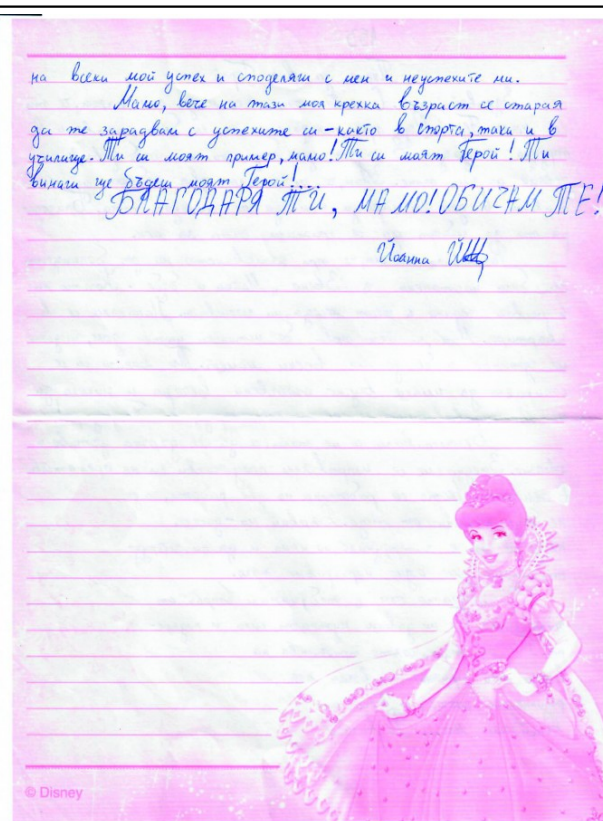 на всеки мой успех и споделяш с мен и неуспехите ми.
Мамо, вече на тази моя крехка възраст се старая
да те зарадвам с успехите си - както в спорта, така и в
училище. Ти си моят пример, мамо! Ти си моят Герой! Ти
винаги ще бъдеш моят Герой!
БЛАГОДАРЯ ТИ, МАМО! ОБИЧАМ ТЕ!
Йоанна
© Disney